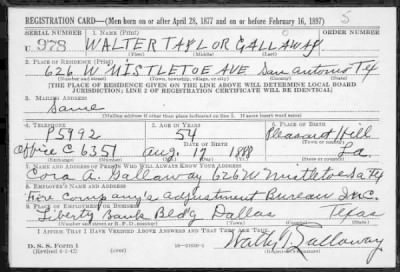 REGISTRATION CARD—(Men born on or after April 28, 1877 and on or before February 16, 1897) 5
SERIAL NUMBER 1. NAME (Print) ORDER NUMBER
U 978 WALTER TAYLOR GALLAWAY
(First) (Middle) (Last)
2. PLACE OF RESIDENCE (Print)
626 W MISTLETOE AVE San Antonio Tex
(Number and street) (Town, township, village, or city) (County) (State)
[THE PLACE OF RESIDENCE GIVEN ON THE LINE ABOVE WILL DETERMINE LOCAL BOARD
JURISDICTION; LINE 2 OF REGISTRATION CERTIFICATE WILL BE IDENTICAL]
3. MAILING ADDRESS
Same
[Mailing address if other than place indicated on line 2. If same insert word same]
4. TELEPHONE 5. AGE IN YEARS 6. PLACE OF BIRTH
P5992 54 Pleasant Hill
DATE OF BIRTH (Town or county)
Office C 6351 Aug. 17 1888 La.
(Exchange) (Number) (Mo.) (Day) (Yr.) (State or country)
7. NAME AND ADDRESS OF PERSON WHO WILL ALWAYS KNOW YOUR ADDRESS
Cora A. Gallaway 626 W Mistletoe SA Tex
8. EMPLOYER'S NAME AND ADDRESS
Fire Company's Adjustment Bureau Inc.
Liberty Bank Bldg Dallas Texas
I AFFIRM THAT I HAVE VERIFIED ABOVE ANSWERS AND THAT THEY ARE TRUE.
D. S. S. Form 1
(Revised 4-1-42) Walter T. Gallaway